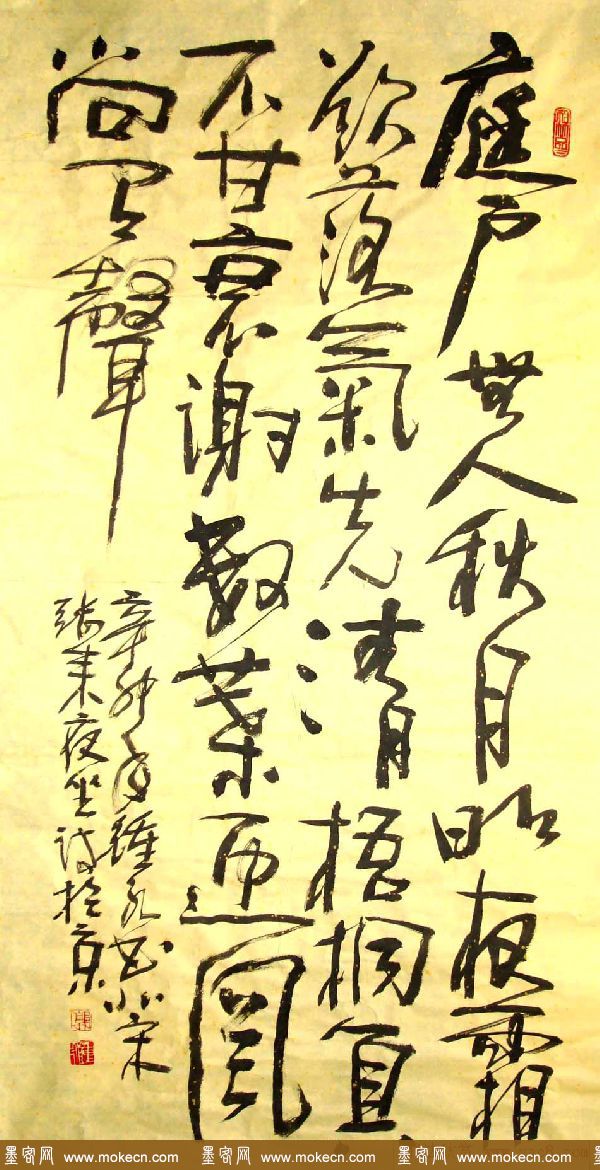 庭户無人秋月明夜霜
欲落氣先清梧桐真
不甘衰謝數葉迎風
尚有聲
辛卯年書北宋
張耒夜坐詩於京
墨客网 www.mokecn.com 墨客网 www.mokecn.com 墨客网 www.mokecn.com